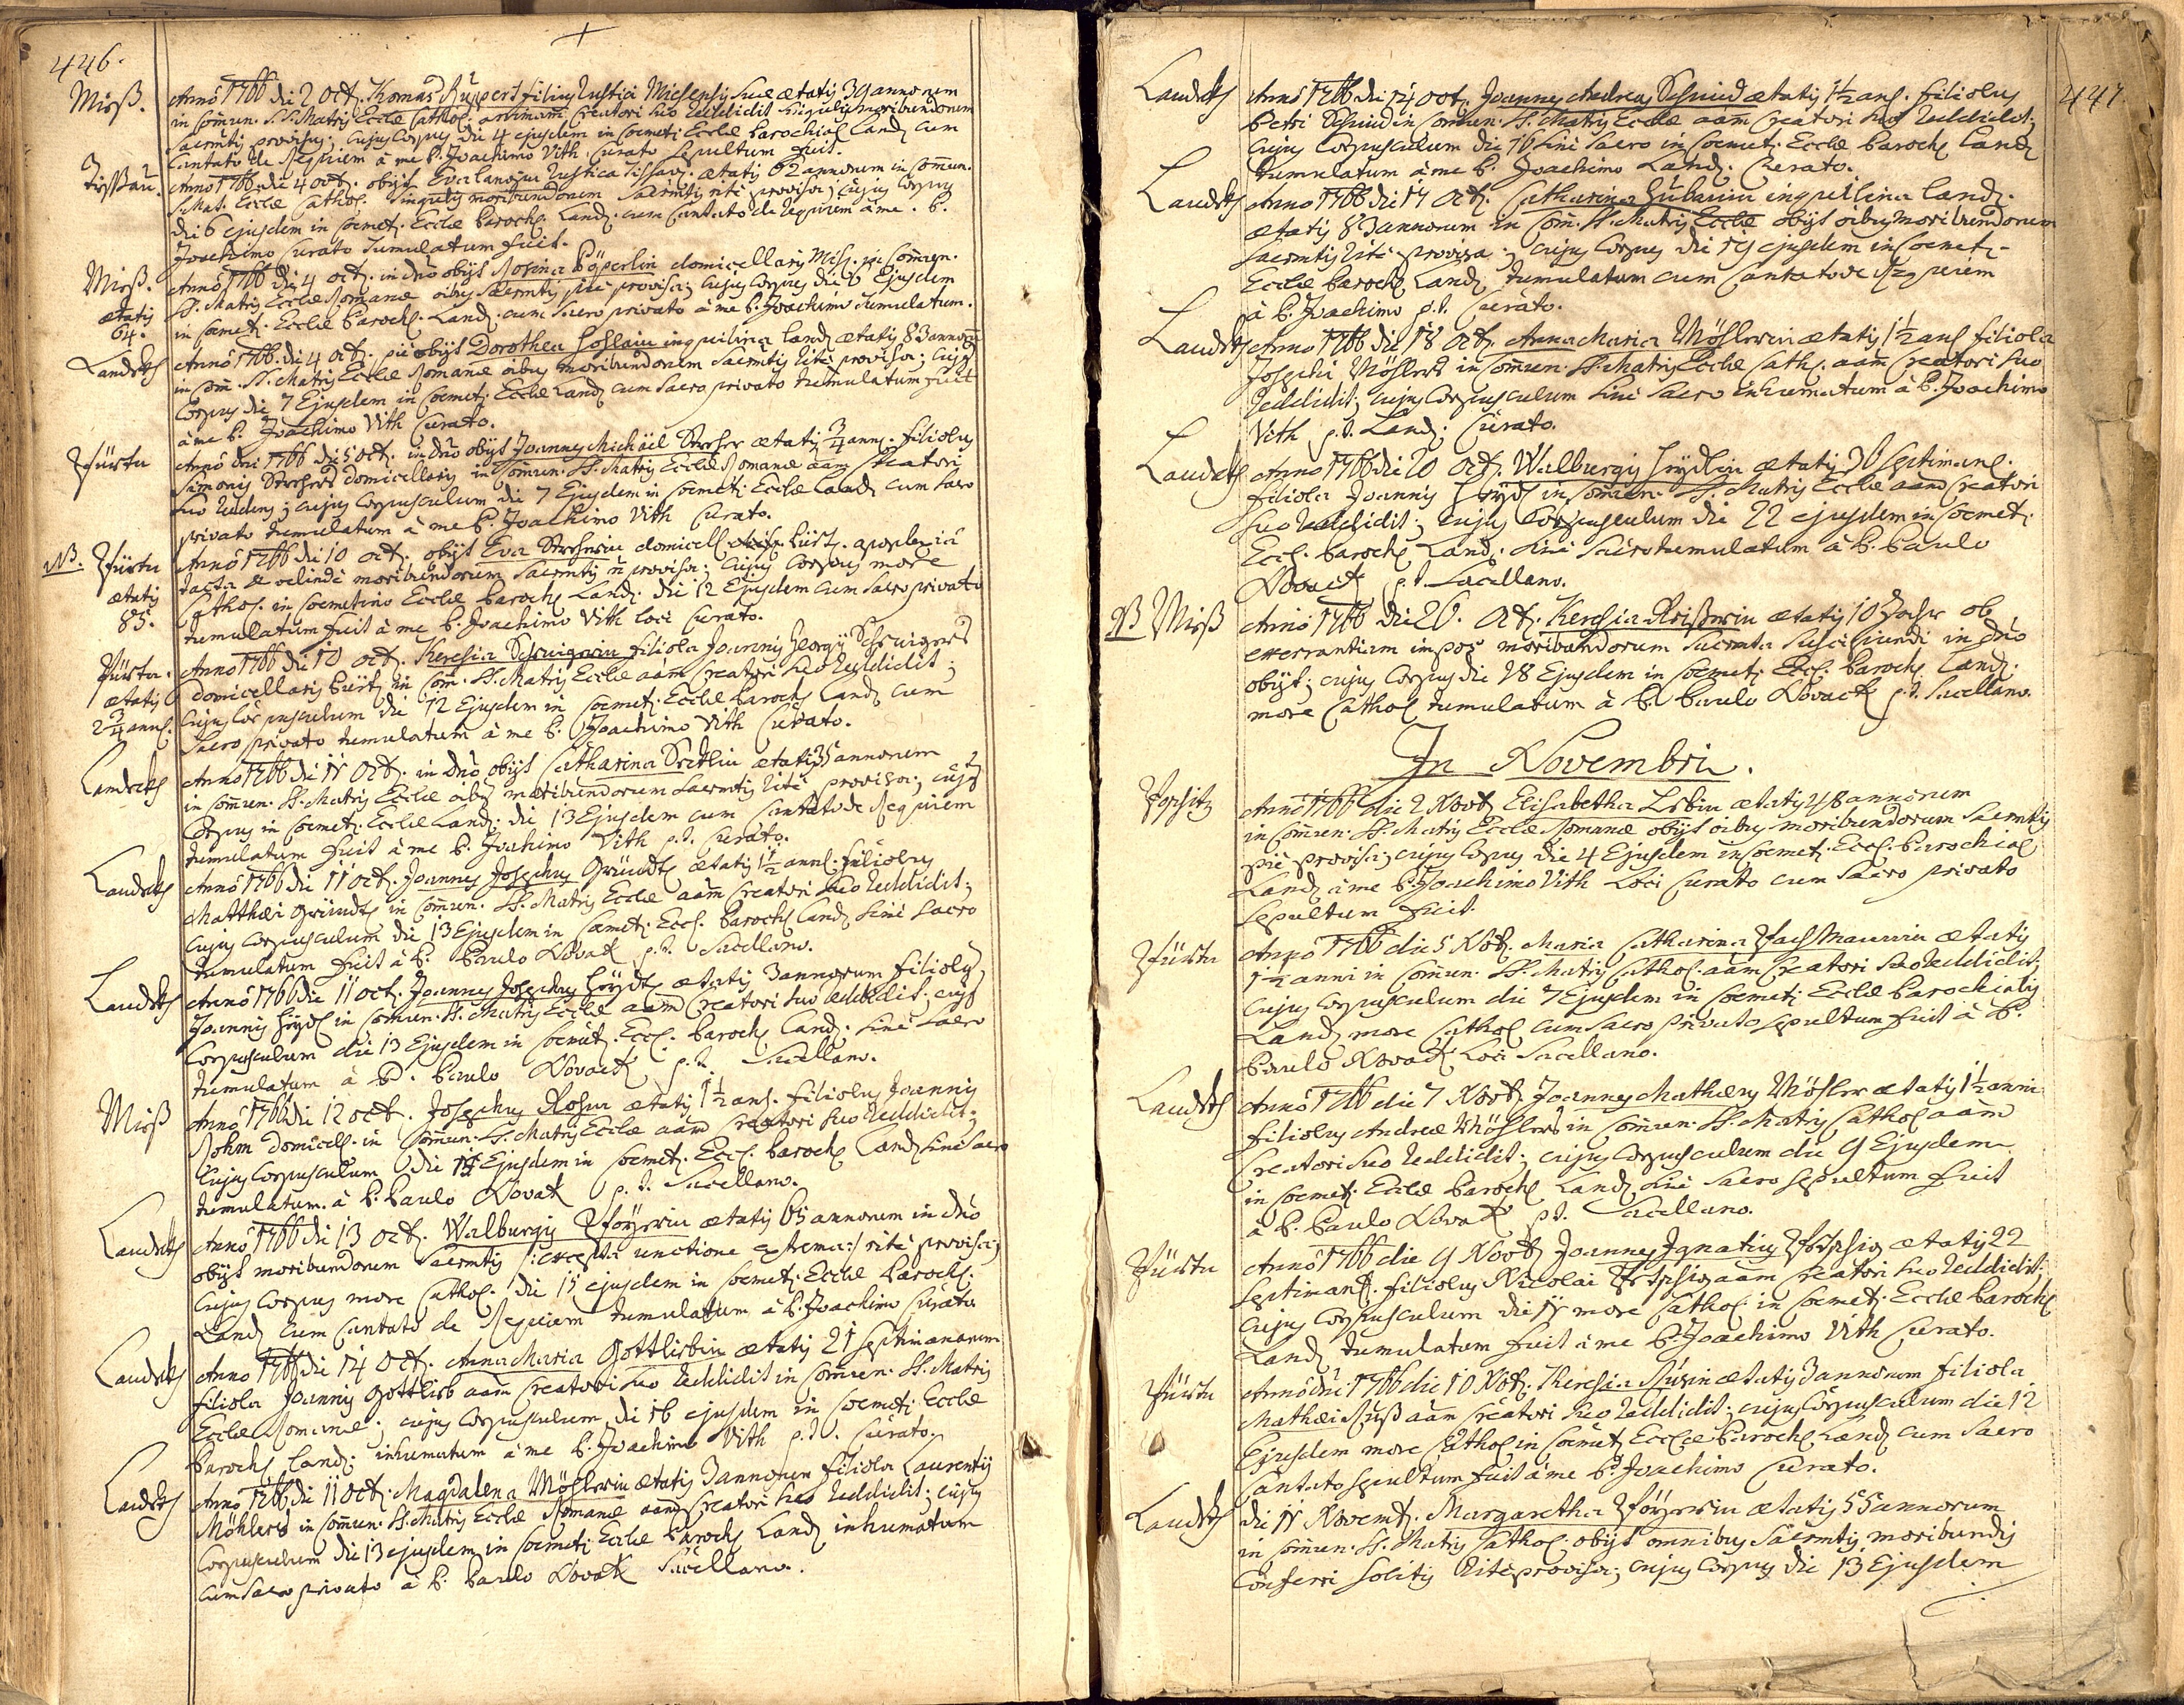 446.
Mieß. Anno 1766 die 2 Oct. Thomas Ruppert filius rustici Miesensis suae aetatis 39 annorum
in Commun. SS. Matris Eccae Cathol. animam Creatori suo reddidit singulis moribundorum
Sacrmtis provisus; cujus Corpus die 4 ejusdem in Coemet: Eccae Parochial Land cum
Cantato de Requiem à me P. Joachimo Vith Curato sepultum fuit.
Tissau. Anno 1766 die 4 oct. obijt Eva rustica Tissav. aetatis 62 annorum in Commun.
S. Mat. Eccae Cathol. singulis moribundorum Sacrmtis rite provisa; cujus Corpus
die 6 ejusdem in Coemet. Eccae Paroch. Land. cum Cantato de Requiem à me P.
Joachimo Curato tumulatum fuit.
Mieß. Anno 1766 die 4 oct. in dno obijt Rosina domicellarij Mis. in Commun.
aetatis SS. Matris Eccae Romanae oibus Sacrmtis pie provisa; cujus Corpus die 6 Ejusdem
64. in Coemet. Eccae Paroch. Land. cum Sacro privato à me P. Joachimo tumulatum.
Landek Anno 1766 die 4 oct. pie obijt Dorothea inquilina Land aetatis 83 annorum
in Com. SS. Matris Eccae Romanae oibus moribundorum Sacrmtis rite provisa; cujus
Corpus die 7 Ejusdem in Coemet. Eccae Land cum Sacro privato tumulatum fuit
à me P. Joachimo Vith Curato.
Pürtn Anno dni 1766 die 5 Oct. in dno obijt Joannes Michäel aetatis 3/4 anni. filiolus
Simonis domicellarij in Commun. SS. Matris Eccae Romanae aam Creatori
suo reddens; cujus Corpusculum die 7 Ejusdem in Coemet: Eccae Land cum Sacro
privato tumulatum à me P. Joachimo Vith Curato.
NB. Pürtn Anno 1766 die 10 oct. obijt Eva domicell. apoplexia
aetatis tacta moribundorum Sacrmtis provisa; cujus Corpus more
85. Cathol. in Coemeterio Eccae Paroch. Land. die 12 Ejusdem cum Sacro privato
tumulatum fuit à me P. Joachimo Vith loci Curato.
Pürtn. Anno 1766 die 10 oct. Theresia filiola Joannis Georgij
aetatis domicellarij in Com. SS. Matris Eccae aam Creatori suo reddidit;
2 3/4 anni. cujus Corpusculum die 12 Ejusdem in Coemet: Eccae Paroch Land cum
Sacro privato tumulatum à me P. Joachimo Vith Curato.
Landek Anno 1766 die 11 Oct. in dno obijt Catharina aetatis 35 annorum
in Commun. SS. Matris Eccae oibus moribundorum Sacrmtis rite provisa; cujus
Corpus in Coemet: Eccae Land: die 13 Ejusdem cum Cantato de Requiem
tumulatum fuit à me P. Joachimo Vith p. t. Curato.
Landek Anno 1766 die 11 oct. Joannes Josephus Gründl aetatis 1 1/2 anni. filiolus
Matthaei Gründl in Commun. SS. Matris Eccae aam Creatori suo reddidit;
cujus Corpusculum die 13 Ejusdem in Coemet: Eccl. Paroch Land sine Sacro
tumulatum fuit à P. Paulo Novak p. t. Sacellano.
Landek Anno 1766 die 11 oct. Joannes Josephus aetatis 3 annorum filiolus
Joannis in Commun. SS. Matris Eccae aam Creatori suo reddidit. cujus
Corpusculum die 13 Ejusdem in Coemet. Eccl. Paroch Land. sine Sacro
tumulatum à P. Paulo Novack p. t. Sacellano.
Mieß Anno 1766 die 12 oct. Josephus aetatis 1 1/2 ani. filiolus Joannis
domicell. in Commun. SS. Matris Eccae aam Creatori suo reddidit;
cujus Corpusculum die Ejusdem in Coemet. Eccl. Paroch Land sine Sacro
tumulatum. à P. Paulo Novak p. t. Sacellano.
Landek Anno 1766 die 13 Oct. Walburgis aetatis 65 annorum in dno
obijt moribundorum Sacrmtis /: excepta unctione extrema :/ rite provisa;
cujus Corpus more Cathol. die 15 ejusdem in Coemet. Eccae Paroch.
Land cum Cantato de Requiem tumulatum à P. Joachimo Curato.
Landek Anno 1766 die 14 Oct. Anna Maria Gottliebin aetatis 21 Septimanarum
filiola Joannis Gottlieb aam Creatori suo reddidit in Commun. SS. Matris
Eccae Romanae; cujus Corpusculum die 16 ejusdem in Coemet: Eccae
Paroch Land: inhumatum à me P. Joachimo Vith p. t. Curato.
Landek Anno 1766 die 11 oct. Magdalena Möhlerin aetatis 3 annorum filiola Laurentij
Möhlers in Commun. SS. Matris Eccae Romanae aam Creatori suo reddidit; cujus
Corpusculum die 13 ejusdem in Coemet: Eccae Paroch Land inhumatum
cum Sacro privato à P. Paulo Novak Sacellano.
447.
Landek Anno 1766 die 14 oct. Joannes Andreas Schmid aetatis 1 1/2 ani. filiolus
Petri Schmid in Commun. SS. Matris Eccae aam Creatori suo reddidit;
cujus Corpusculum die 16 sine Sacro in Coemet. Eccae Paroch Land
tumulatum à me P. Joachimo Land. Curato.
Landek Anno 1766 die 17 Oct. Catharina inquilina Land.
aetatis 83 annorum in Com. SS. Matris Eccae obijt oibus moribundorum
Sacrmtis rite provisa; cujus Corpus die 19 ejusdem in Coemet.
Eccae Paroch Land tumulatum cum Cantato de Requiem
à P. Joachimo p. t. Curato.
Landek Anno 1766 die 18 Oct. Anna Maria Möhlerin aetatis 1 1/2 ani filiola
Josephi Möhlers in Commun. SS. Matris Eccae Cath. aam Creatori suo
reddidit; cujus Corpusculum sine Sacro inhumatum à P. Joachimo
Vith p. t. Land: Curato.
Landek Anno 1766 die 20 Oct. Walburgis aetatis 36 septimans.
filiola Joannis in Commun. SS. Matris Eccae aam Creatori
suo reddidit; cujus Corpusculum die 22 ejusdem in Coemet.
Eccl. Paroch Land. sine Sacro tumulatum à P. Paulo
Novack p. t. Sacellano.
NB Mieß Anno 1766 die 26. Oct. Theresia aetatis 10 ob
moribundorum Sacrmta suscipiendi in dno
obijt; cujus Corpus die 28 Ejusdem in Coemet. Eccl. Paroch Land.
more Cathol tumulatum à P. Paulo Novack p. t. Sacellano.
In Novembri.
Anno 1766 die 2 Novb Elisabetha aetatis 48 annorum
in Commun. SS. Matris Eccae Romanae obijt oibus moribundorum Sacrmtis
pie provisa; cujus Corpus die 4 Ejusdem in Coemet. Eccl. Parochial
Land à me P. Joachimo Vith Loci Curato cum Sacro privato
sepultum fuit.
Pürtn Anno 1766 die 5 Nob. Maria Catharina aetatis
1 1/2 anni in Commun. SS. Matris Cathol. aam Creatori suo reddidit;
cujus Corpusculum die 7 Ejusdem in Coemet: Eccae Parochialis
Land more Cathol cum Sacro privato sepultum fuit à P.
Paulo Novack Loci Sacellano.
Landek Anno 1766 die 7 Novb Joannes Mathaeus Möhler aetatis 1 1/2 anni
filiolus Andreae Möhlers in Commun. SS. Matris Cathol aam
Creatori suo reddidit; cujus Corpusculum die 9 Ejusdem
in Coemet. Eccae Paroch Land sine Sacro sepultum fuit
à P. Paulo Novak p. t. Sacellano.
Pürtn Anno 1766 die 9 Novb Joannes Ignatius aetatis 22
septimans. filiolus Nicolai aam Creatori suo reddidit;
cujus Corpusculum die 11 more Cathol. in Coemet. Eccae Paroch
Land tumulatum fuit à me P. Joachimo Vith Curato.
Pürtn Anno dni 1766 die 10 Nob. Theresia aetatis 3 annorum filiola
Mathaei aam Creatori suo reddidit; cujus Corpusculum die 12
Ejusdem more Cathol in Coemet Eccae Paroch Land cum Sacro
Cantato sepultum fuit à me P. Joachimo Curato.
Landek die 11 Novemb. Margaretha aetatis 55 annorum
in Commun. SS. Matris Cathol. obijt omnibus Sacrmtis moribundis
conferri solitis rite provisa; cujus Corpus die 13 Ejusdem